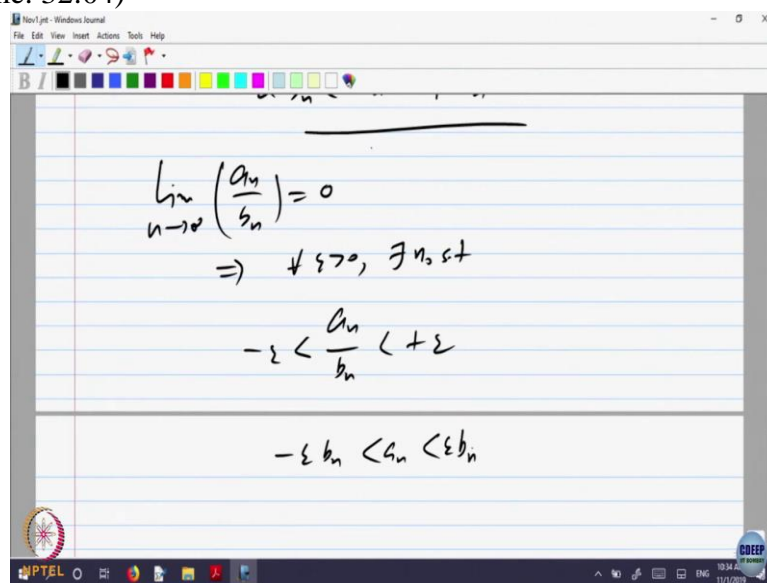 Nov1.jnt - Windows Journal
File Edit View Insert Actions Tools Help
B I
lim (a_n / b_n) = 0
n→∞
⇒ ∀ ε>0, ∃ n₀ s.t
-ε < a_n / b_n < +ε
-ε b_n < a_n < ε b_n
NPTEL
CDEEP
IIT BOMBAY
ENG
10:34 A
11/1/2019